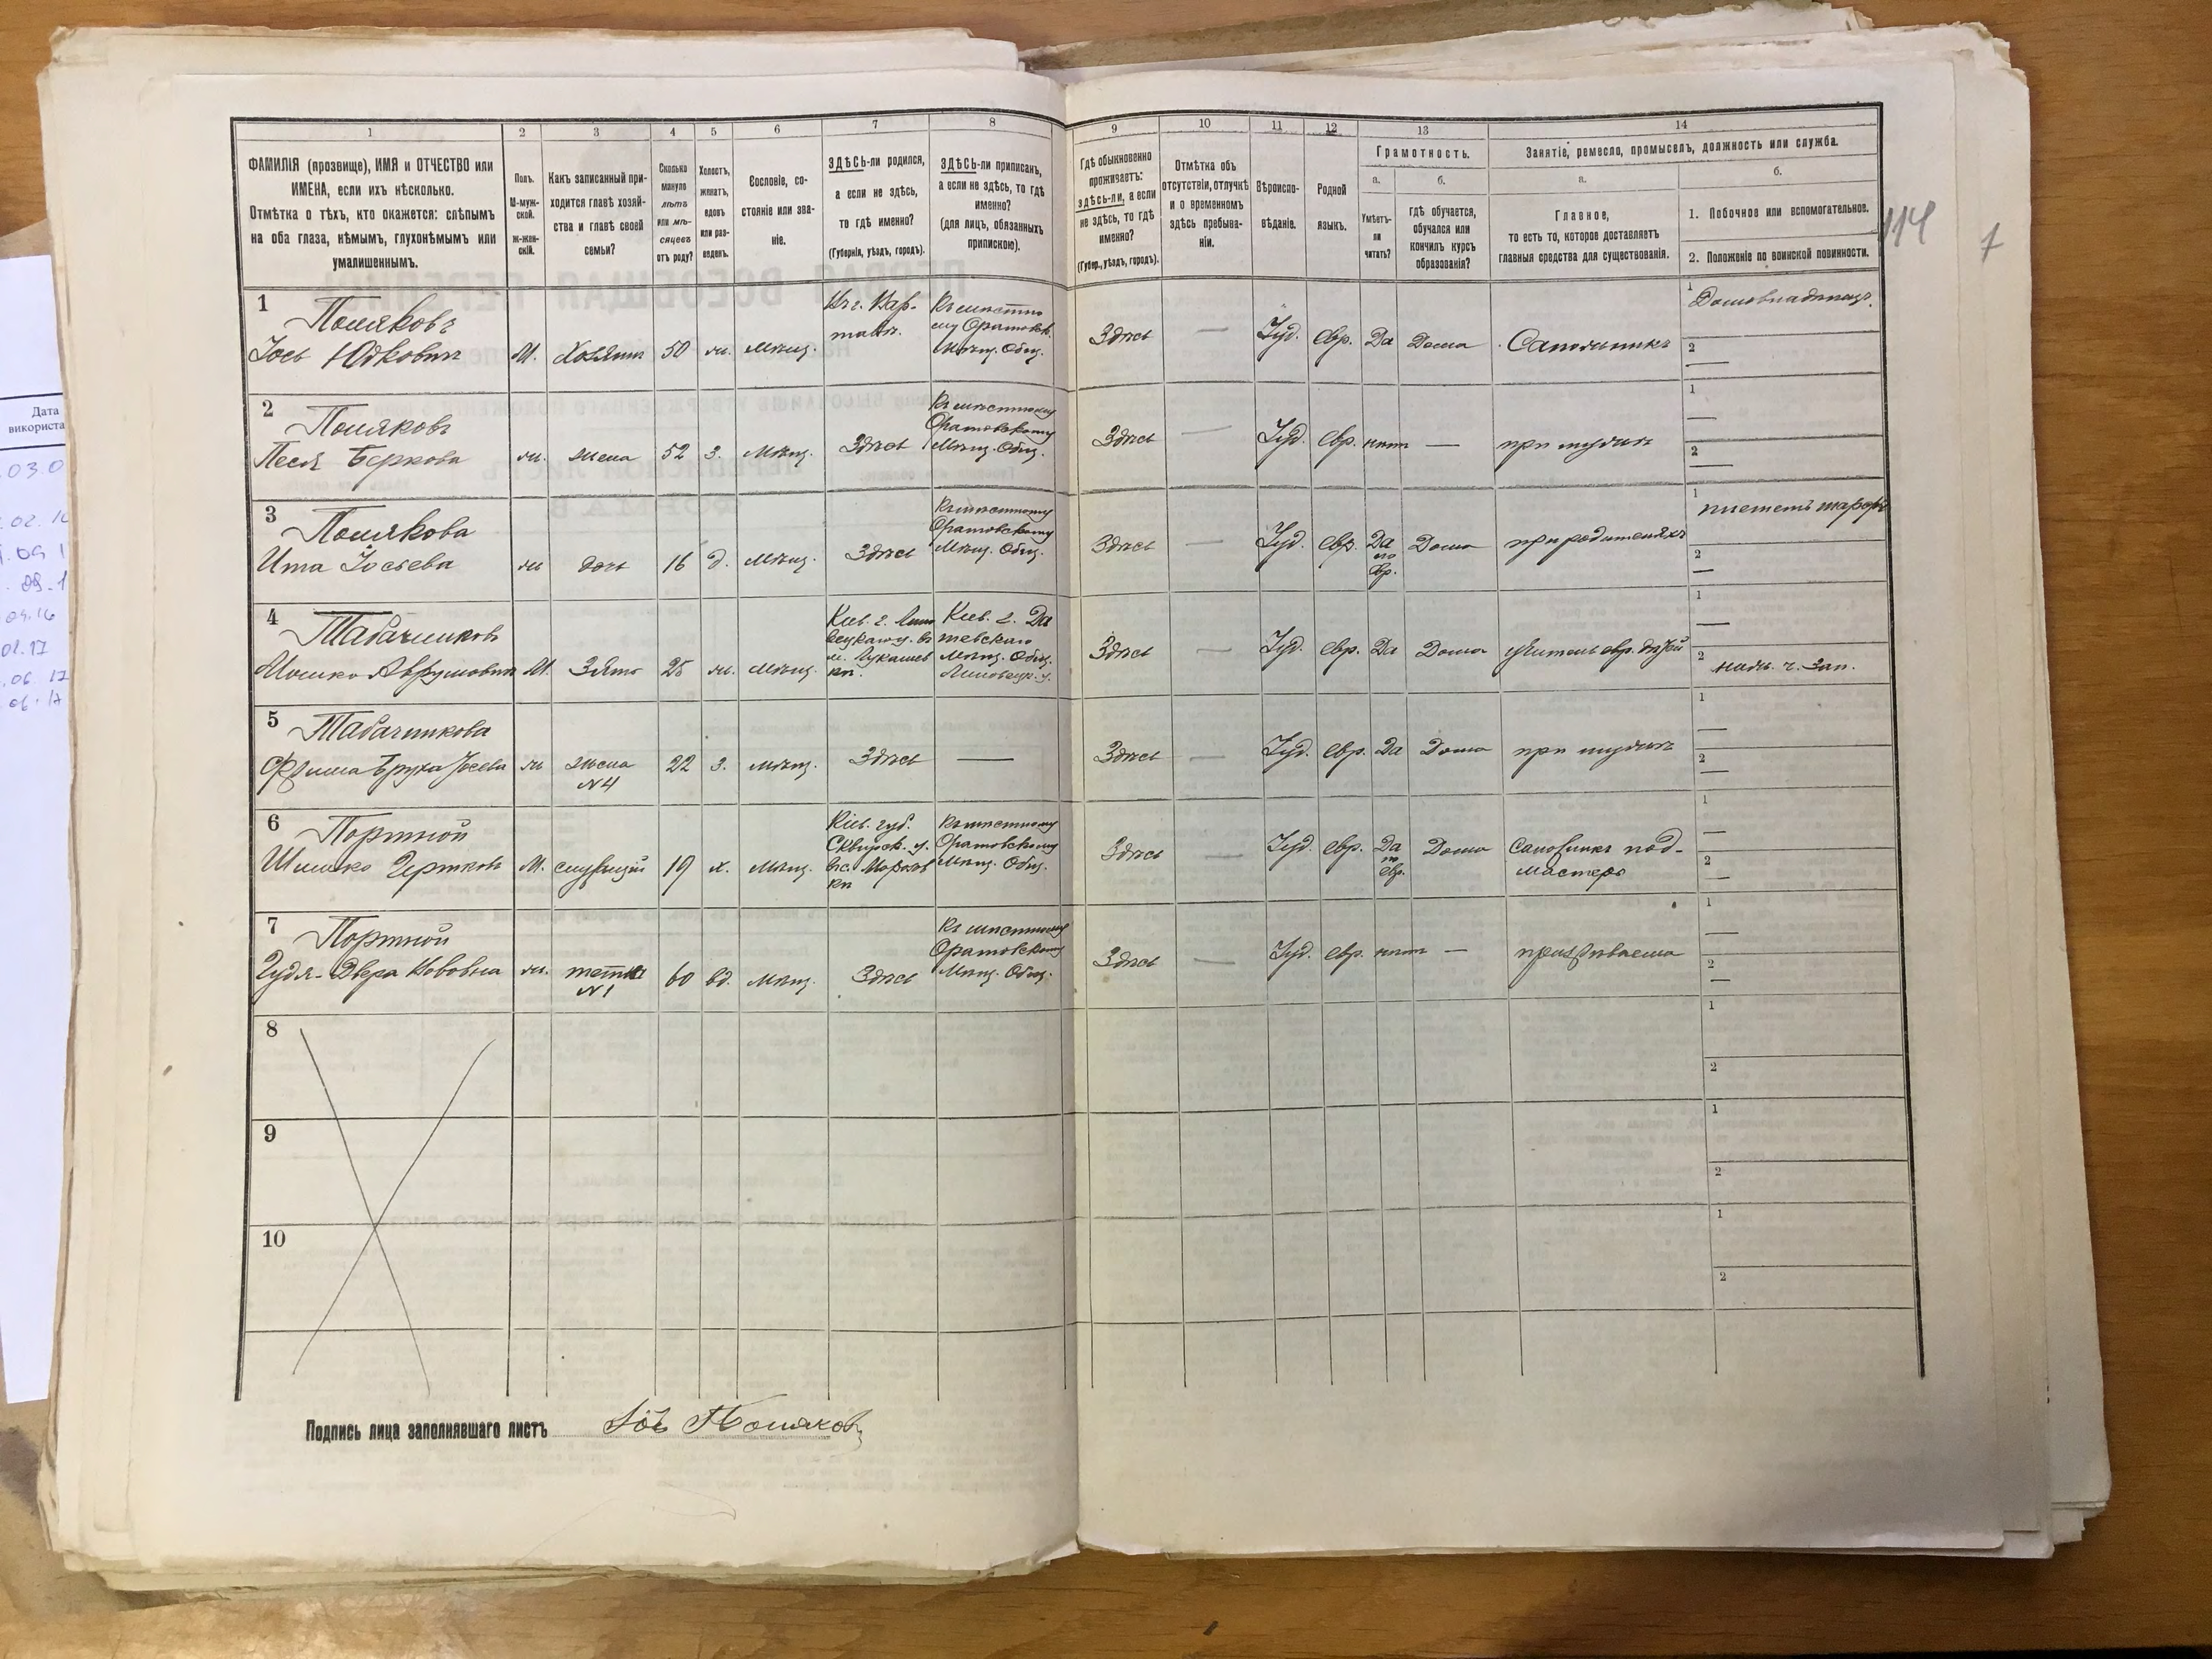 1 2 3 4 5 6 7 8
ФАМИЛІЯ (прозвище), ИМЯ и ОТЧЕСТВО или
ИМЕНА, если ихъ нѣсколько.
Отмѣтка о тѣхъ, кто окажется: слѣпымъ
на оба глаза, нѣмымъ, глухонѣмымъ или
умалишеннымъ.
Полъ.
М-муж-
ской.
Ж-жен-
скій.
Какъ записанный при-
ходится главѣ хозяй-
ства и главѣ своей
семьи?
Сколько
минуло
лѣтъ
или мѣ-
сяцевъ
отъ роду?
Холостъ,
женатъ,
вдовъ
или раз-
веденъ.
Сословіе, со-
стояніе или зва-
ніе.
ЗДѢСЬ-ли родился,
а если не здѣсь,
то гдѣ именно?
(Губернія, уѣздъ, городъ).
ЗДѢСЬ-ли приписанъ,
а если не здѣсь, то гдѣ
именно?
(для лицъ, обязанныхъ
припискою).
9 10 11 12 13 14
Гдѣ обыкновенно
проживаетъ:
здѣсь-ли, а если
не здѣсь, то гдѣ
именно?
(Губер., уѣздъ, городъ).
Отмѣтка объ
отсутствіи, отлучкѣ
и о временномъ
здѣсь пребыва-
ніи.
Вѣроиспо-
вѣданіе.
Родной
языкъ.
Грамотность.
а.
Умѣетъ-
ли
читать?
б.
гдѣ обучается,
обучался или
кончилъ курсъ
образованія?
Занятіе, ремесло, промыселъ, должность или служба.
а.
Главное,
то есть то, которое доставляетъ
главныя средства для существованія.
б.
1. Побочное или вспомогательное.
2. Положеніе по воинской повинности.
114
7
1
Поляковъ
Іось Юдковичъ М. Хозяинъ 50 ж. Мѣщ.
Къ мѣстно
му Оратовск.
Мѣщ. Общ.
Здѣсь — Іуд. евр. Да Дома Сапожникъ
1 Домовладѣлецъ.
2 —
2
Поляковъ
Песя Беркова ж. жена 52 з. Мѣщ. Здѣсь
Къ мѣстному
Оратовскому
Мѣщ. Общ.
Здѣсь — Іуд. евр. нѣт — при мужѣ
1 —
2 —
3
Полякова
Ита Іосьева ж дочь 16 д. Мѣщ. Здѣсь
Къ мѣстному
Оратовскому
Мѣщ. Общ.
Здѣсь — Іуд. евр. Да
по
евр.
Дома при родителяхъ
1
2 —
4
Табачников
Мошко Аврумович М. Зять 25 ж. Мѣщ.
Кіев. г. Липо
вецкаго у. въ
м. Лукашев
кѣ.
Кіев. г. Да
шевскаго
Мѣщ. Общ.
Липовецк. у.
Здѣсь — Іуд. евр. Да Дома учитель евр. дѣтей
1 —
2
5
Табачникова
Фрима Бруха Іосева ж жена 22 з. Мѣщ. Здѣсь —
N4
Здѣсь — Іуд. евр. Да Дома при мужѣ
1 —
2 —
6
Портной
М. служащій 19 х. Мѣщ.
Кіев. губ.
Сквирск. у.
Къ мѣстному
Оратовскому
Мѣщ. Общ.
Здѣсь — Іуд евр. Да
по
евр.
Дома Сапожникъ под-
мастеръ
1 —
2 —
7
Портной
ж. тетка 60 вд. Мѣщ. Здѣсь
N1
Къ мѣстному
Оратовскому
Мѣщ. Общ.
Здѣсь — Іуд. евр. нѣт —
1 —
2 —
8
1
2
9
1
2
10
1
2
Подпись лица заполнявшаго листъ Поляковъ
Дата
використа